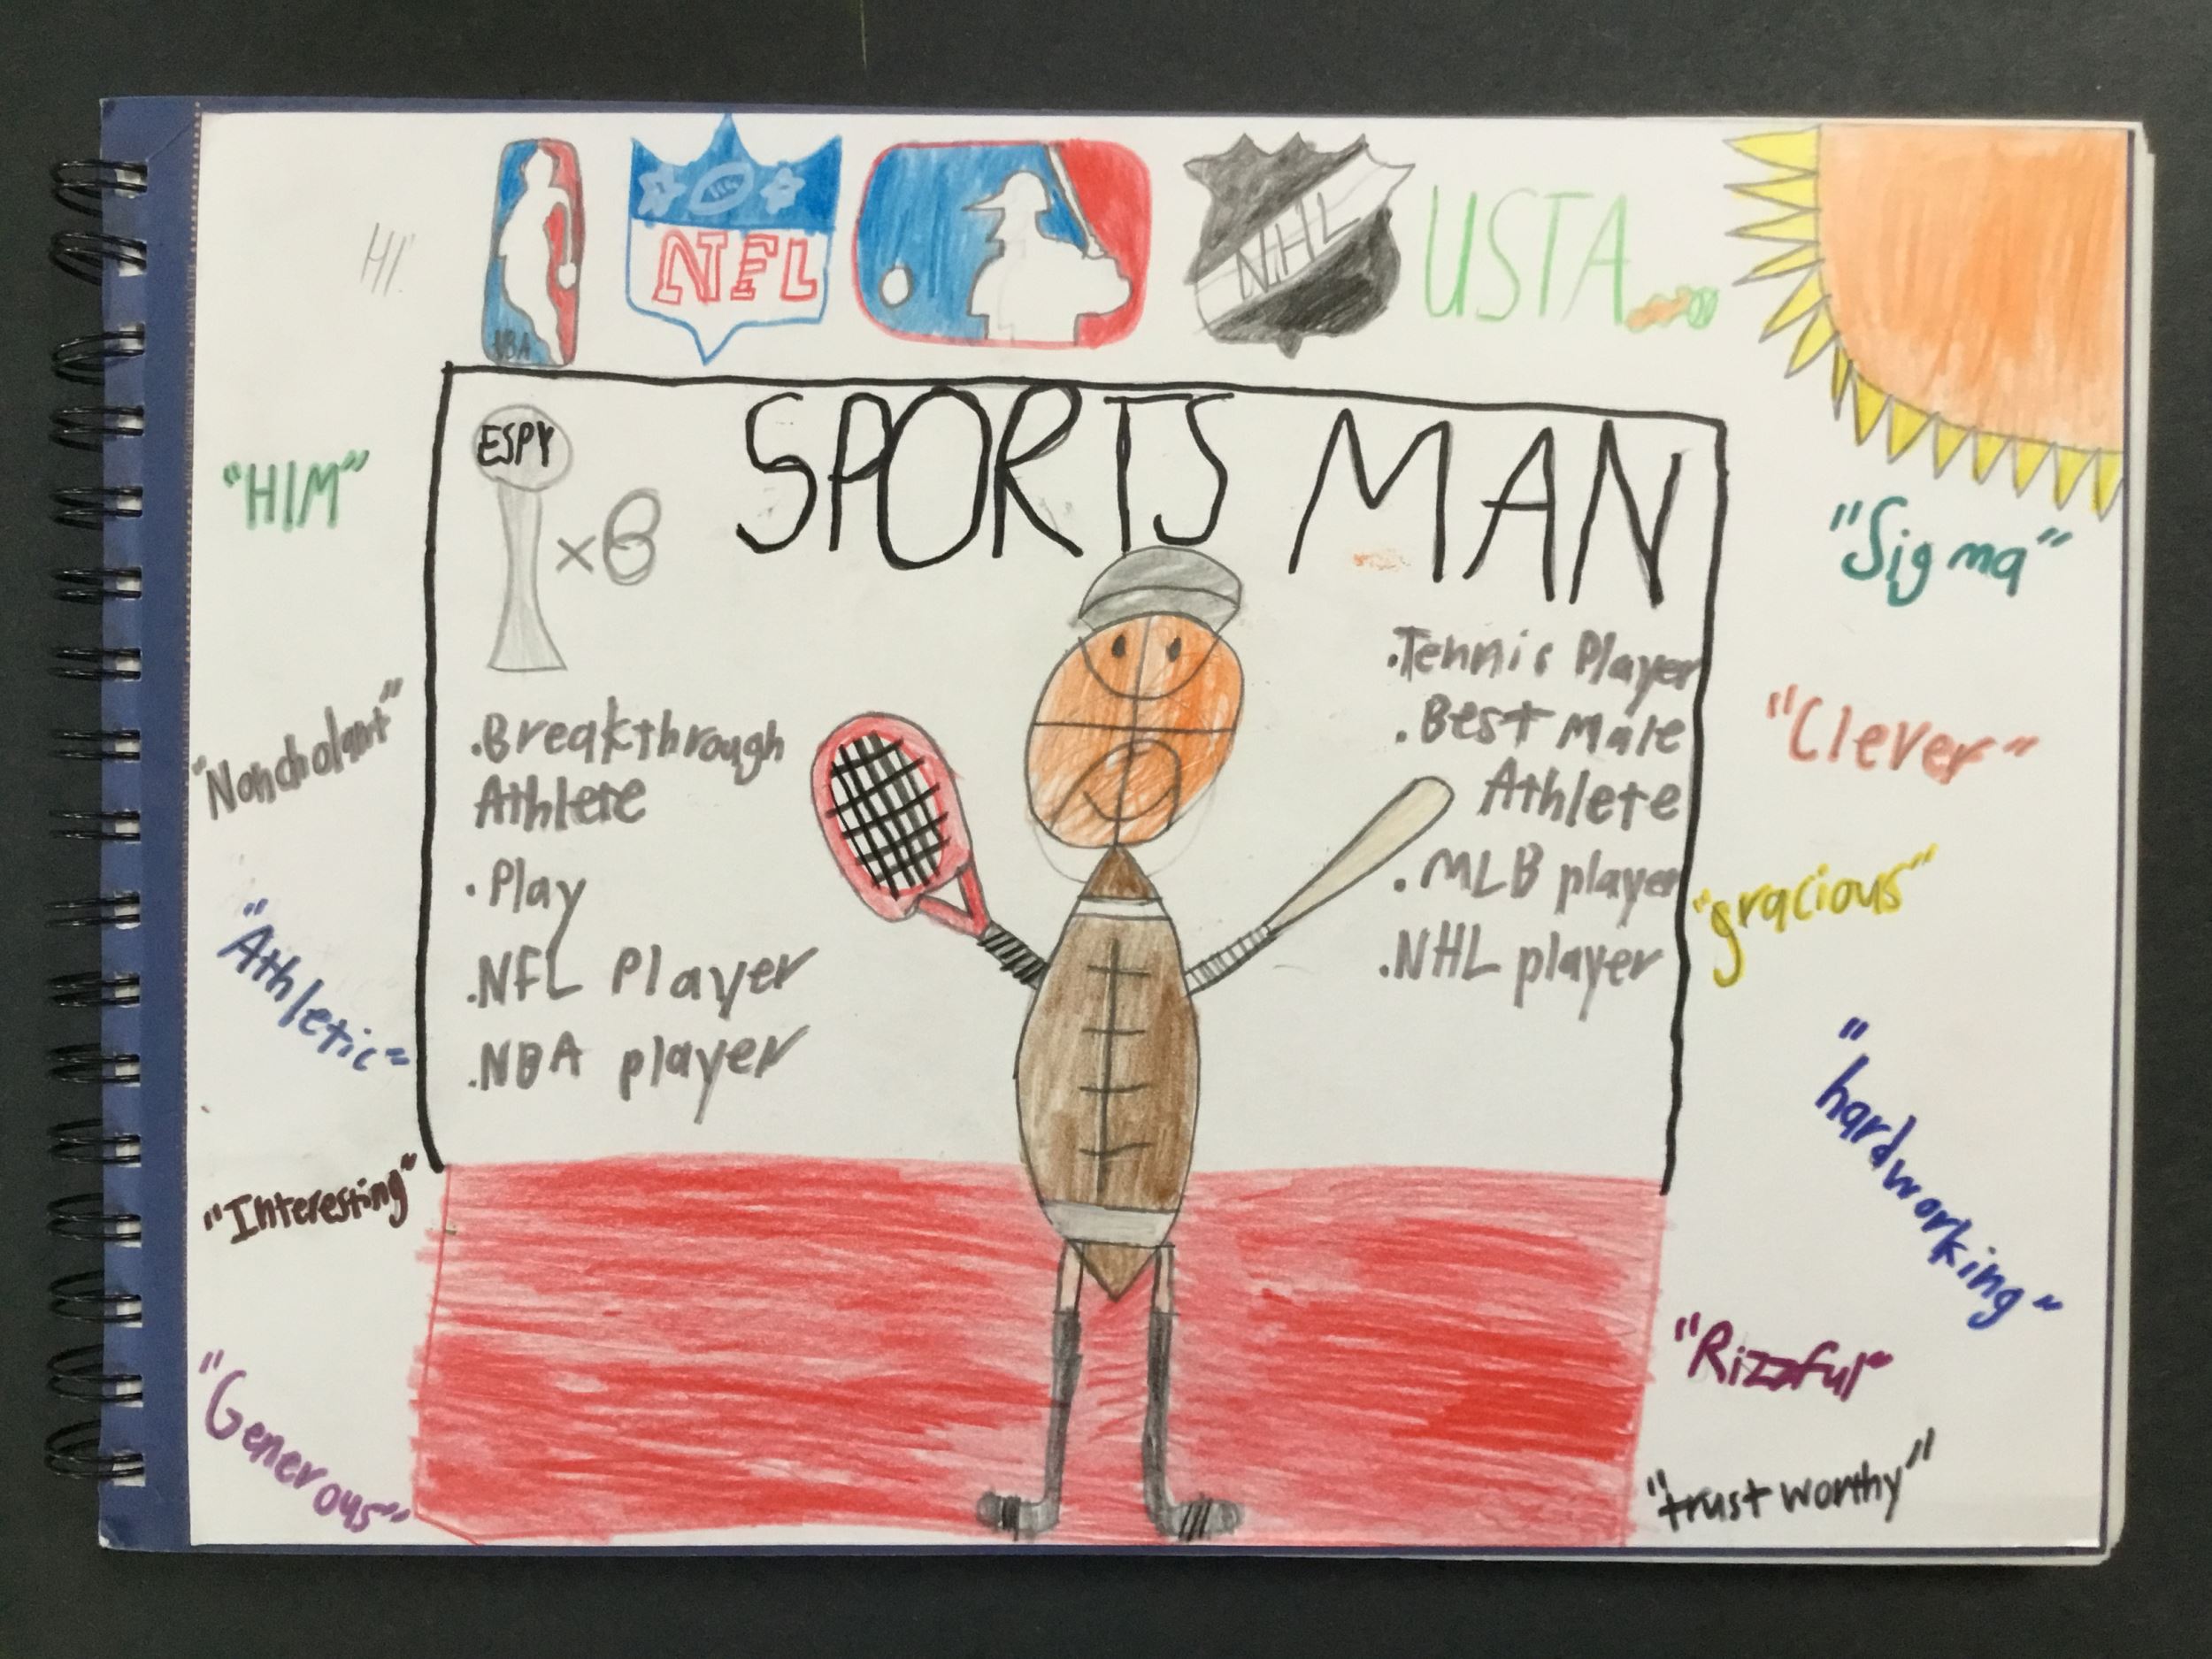 HI
NBA
NFL
NHL
USTA
SPORTS MAN
ESPY
"HIM"
"Noncholant"
"Athletic"
"Interesting"
"Generous"
.Breakthrough
Athlete
.Play
.NFL Player
.NBA player
.Tennis Player
.Best Male
Athlete
.MLB player
.NHL player
"Sigma"
"Clever"
"gracious"
"hardworking"
"Rizzful"
"trust worthy"